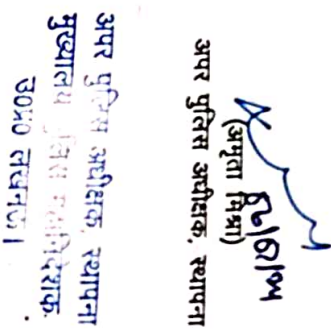 (अमृता मिश्रा)
अपर पुलिस अधीक्षक, स्थापना
अपर पुलिस अधीक्षक, स्थापना
मुख्यालय पुलिस महानिदेशक
उ0प्र0 लखनऊ।